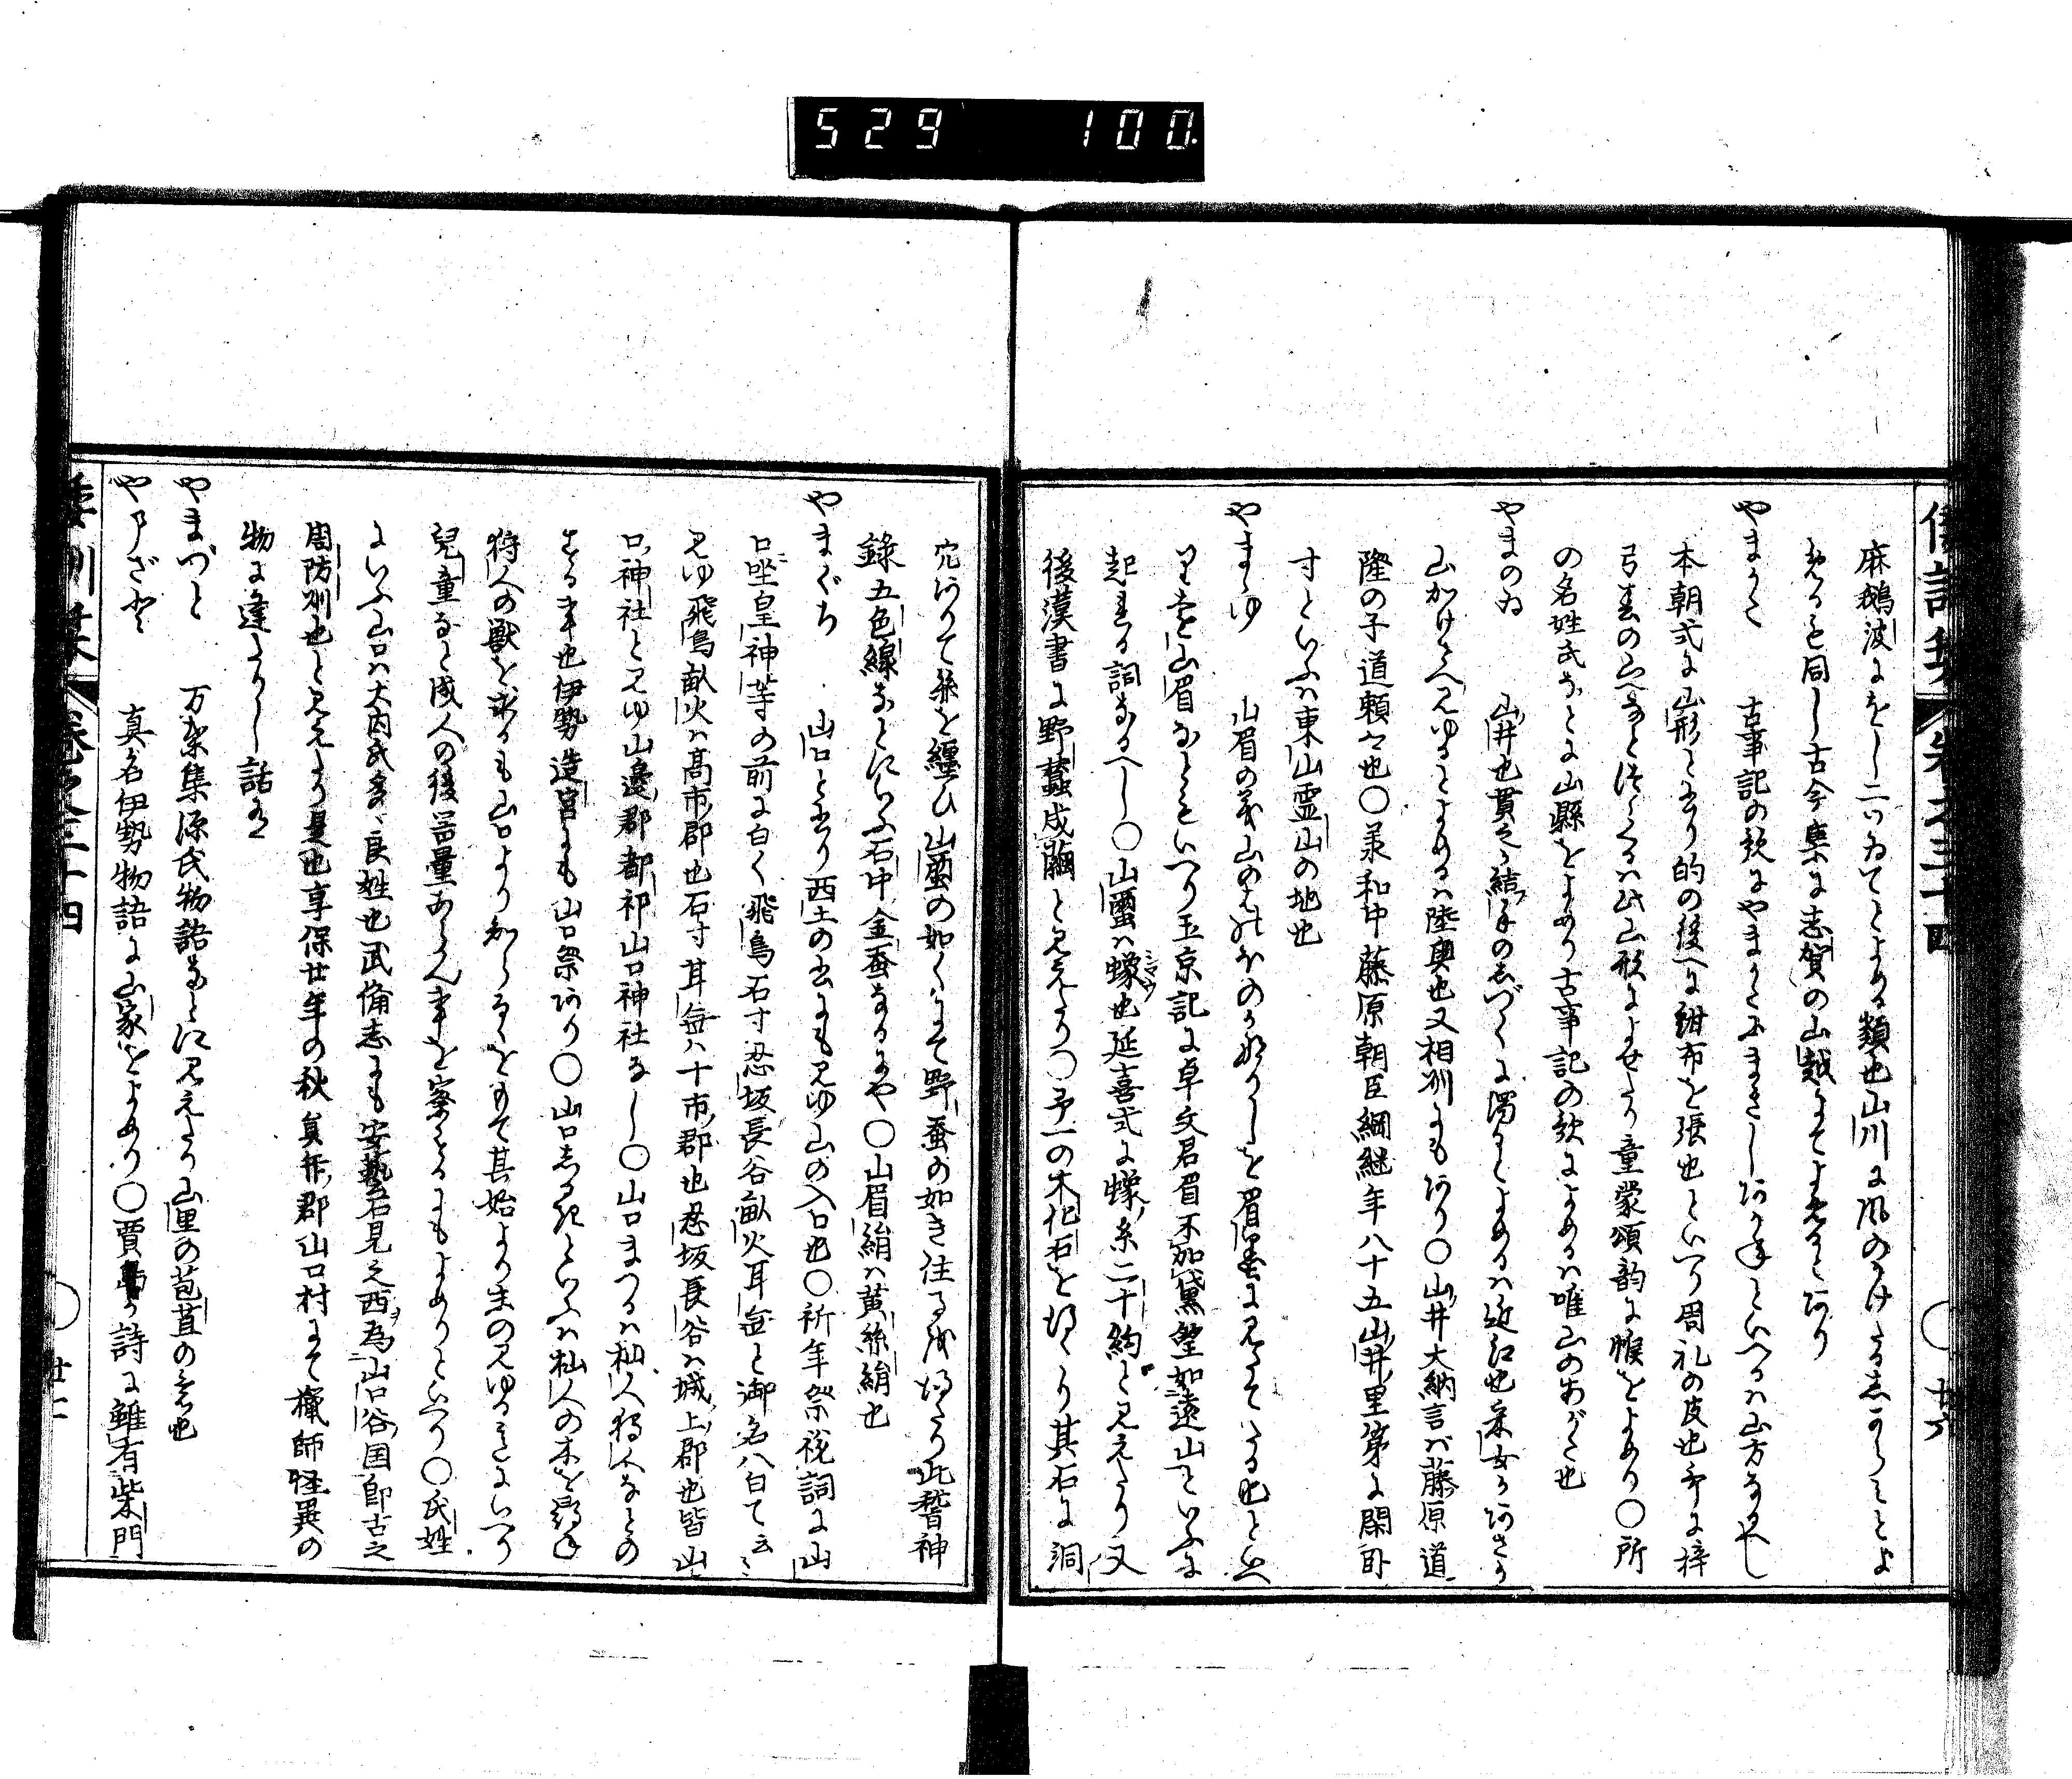 529 100.
麻鵝波によし二いゐてとよめる類也山川に風のかけたる志からみとよ
めるも同し古今集に志賀の山越にてよめるとあり
やまかた 古事記の歌にやまかたにまきしあをなといへるハ山方なるへし
本朝式に山形とあり的の後へに紺布を張也といへり周礼の皮也或は梓
弓春の山へなとつゝくるハ此山形によせたり童蒙頌韵に帿をよめり〇所
の名姓氏なとに山縣をよめり古事記の歌によめるハ唯山のあがた也
やまのゐ 山井也貫之か結ふ手の志づくに濁るとよめるハ近江也采女かあさか
山かけさへ見ゆるとよめるハ陸奥也又相州にもあり〇山井大納言ハ藤原道
隆の子道頼公也〇承和中藤原朝臣綱継年八十五山井里第に閑臥
すといふハ東山霊山の地也
やままゆ 山眉の義山のはのほのかなるを眉墨に見たてたる也といへ
り又遠山眉なともいへり玉京記に卓文君眉不加黛望如遠山といふに
起れる詞なるへし〇山蠒ハ蠓也延喜式に蠓糸二十絇と見えたり又
後漢書に野蠶成繭と見えたり〇予一の木化石を得たり其石に洞
穴ありて糸を纏ひ山蠒の如くにて野蚕の如き住るを得たり此稽神
錄五色線なとにいふ石中金蚕なるにや〇山眉絹ハ黄絲絹也
やまぐち 山口とあり西土の書にも見ゆ山の入口也〇祈年祭祝詞に山
口坐皇神等の前に白く飛鳥石寸忍坂長谷畝火耳無と御名ハ白て云々
見ゆ飛鳥畝火ハ高市郡也石寸耳無ハ十市郡也忍坂長谷ハ城上郡也皆山
口神社と見ゆ山邊郡都祁山口神社なし〇山口まつるハ杣人狩人なとの
する事也伊勢造宮にも山口祭あり〇山口志るしといふハ杣人の木を尋ね
狩人の獣を求るも山口より知らるゝをもて其始より末の見ゆるをいへり
兒童なと成人の後器量あらん事を察するにもよめりといへり〇氏姓
にいふ山口ハ大内氏多々良姓也武備志にも安藝石見之西為山口谷国即古之
周防州也と見えたり是也享保廿年の秋員弁郡山口村にて獵師怪異の
物に逢たりし話有
やまづと 万葉集源氏物語なとに見えたり山里の苞苴の意也
やまざと 真名伊勢物語に山家をよめり〇賈島か詩に雖有柴門